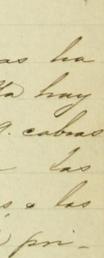 as ha
Ya hay
9. cabras
las
s a los
pri-